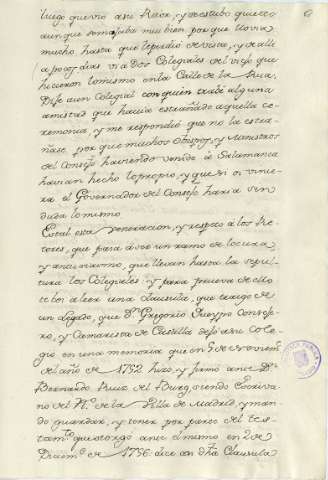 luego que vio a su Raxe, y se estubo quieto
aunque se mojaba mui bien, por que llovia
mucho, hasta que le perdió de vista, y de alli
a pocos dias vi a Dos Colegiales del viejo que
hicieron lo mismo en la Calle de la Rua,
Dije a un Colegial con quien trabé alguna
amistad que havia estrañado aquella ce-
remonia, y me respondió que no la estra-
ñase por que muchos obispos, y Ministros
del Consejo haviendo venido a Salamanca
havian hecho lo propio, y que si vinie-
ra el Governador del Consejo haria sin
duda lo mismo
Es tal esta veneracion, y respeto a los Rec-
tores, que pasa a ser un ramo de locura
y fanatismo, que llevan hasta la sepul-
tura los Colegiales y para prueva de ello
te boi a leer una clausula, que traigo de
un legado, que Dn. Gregorio Queypo Conseje-
ro, y Camarista de Castilla dejó a su Co-
legio en una memoria que en 5 de Noviem.
del año de 1752 hizo, y firmó ante Dn.
Bernardo Ruiz del Burgo, siendo Escriva-
no del Nº. de la Villa de Madrid, y man-
dó guardar, y tener por parte del tes-
tamto. que otorgo ante el mismo en 2 de
Diciemb. de 1756. dice con dha Clausula